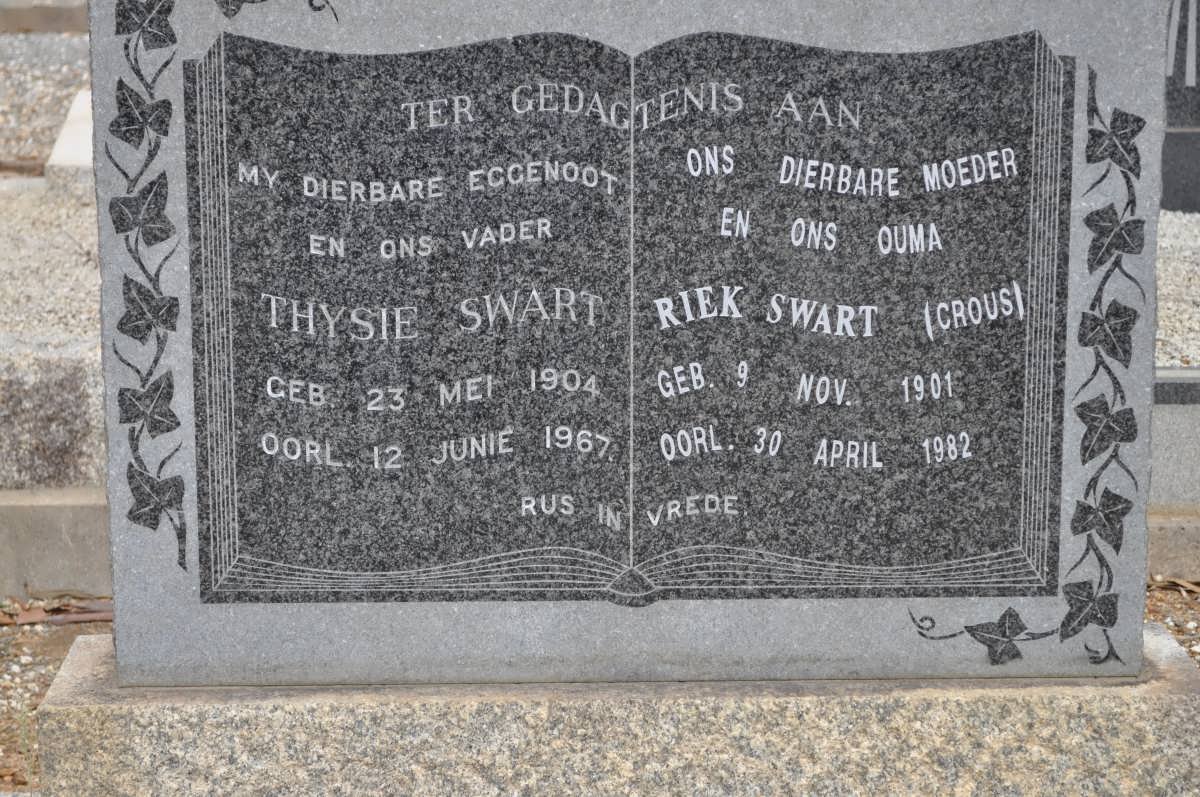 TER GEDAGTENIS AAN
MY DIERBARE EGGENOOT
EN ONS VADER
THYSIE SWART
GEB. 23 MEI 1904
OORL. 12 JUNIE 1967.
ONS DIERBARE MOEDER
EN ONS OUMA
RIEK SWART (CROUS)
GEB. 9 NOV. 1901
OORL. 30 APRIL 1982
RUS IN VREDE.